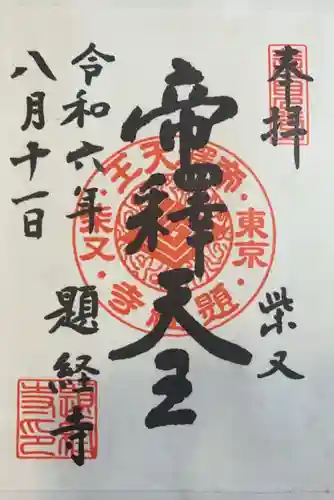 奉拝
柴又
帝釋天王
令和六年
八月十一日
題経寺
帝釋天王
東京
柴又
題経寺